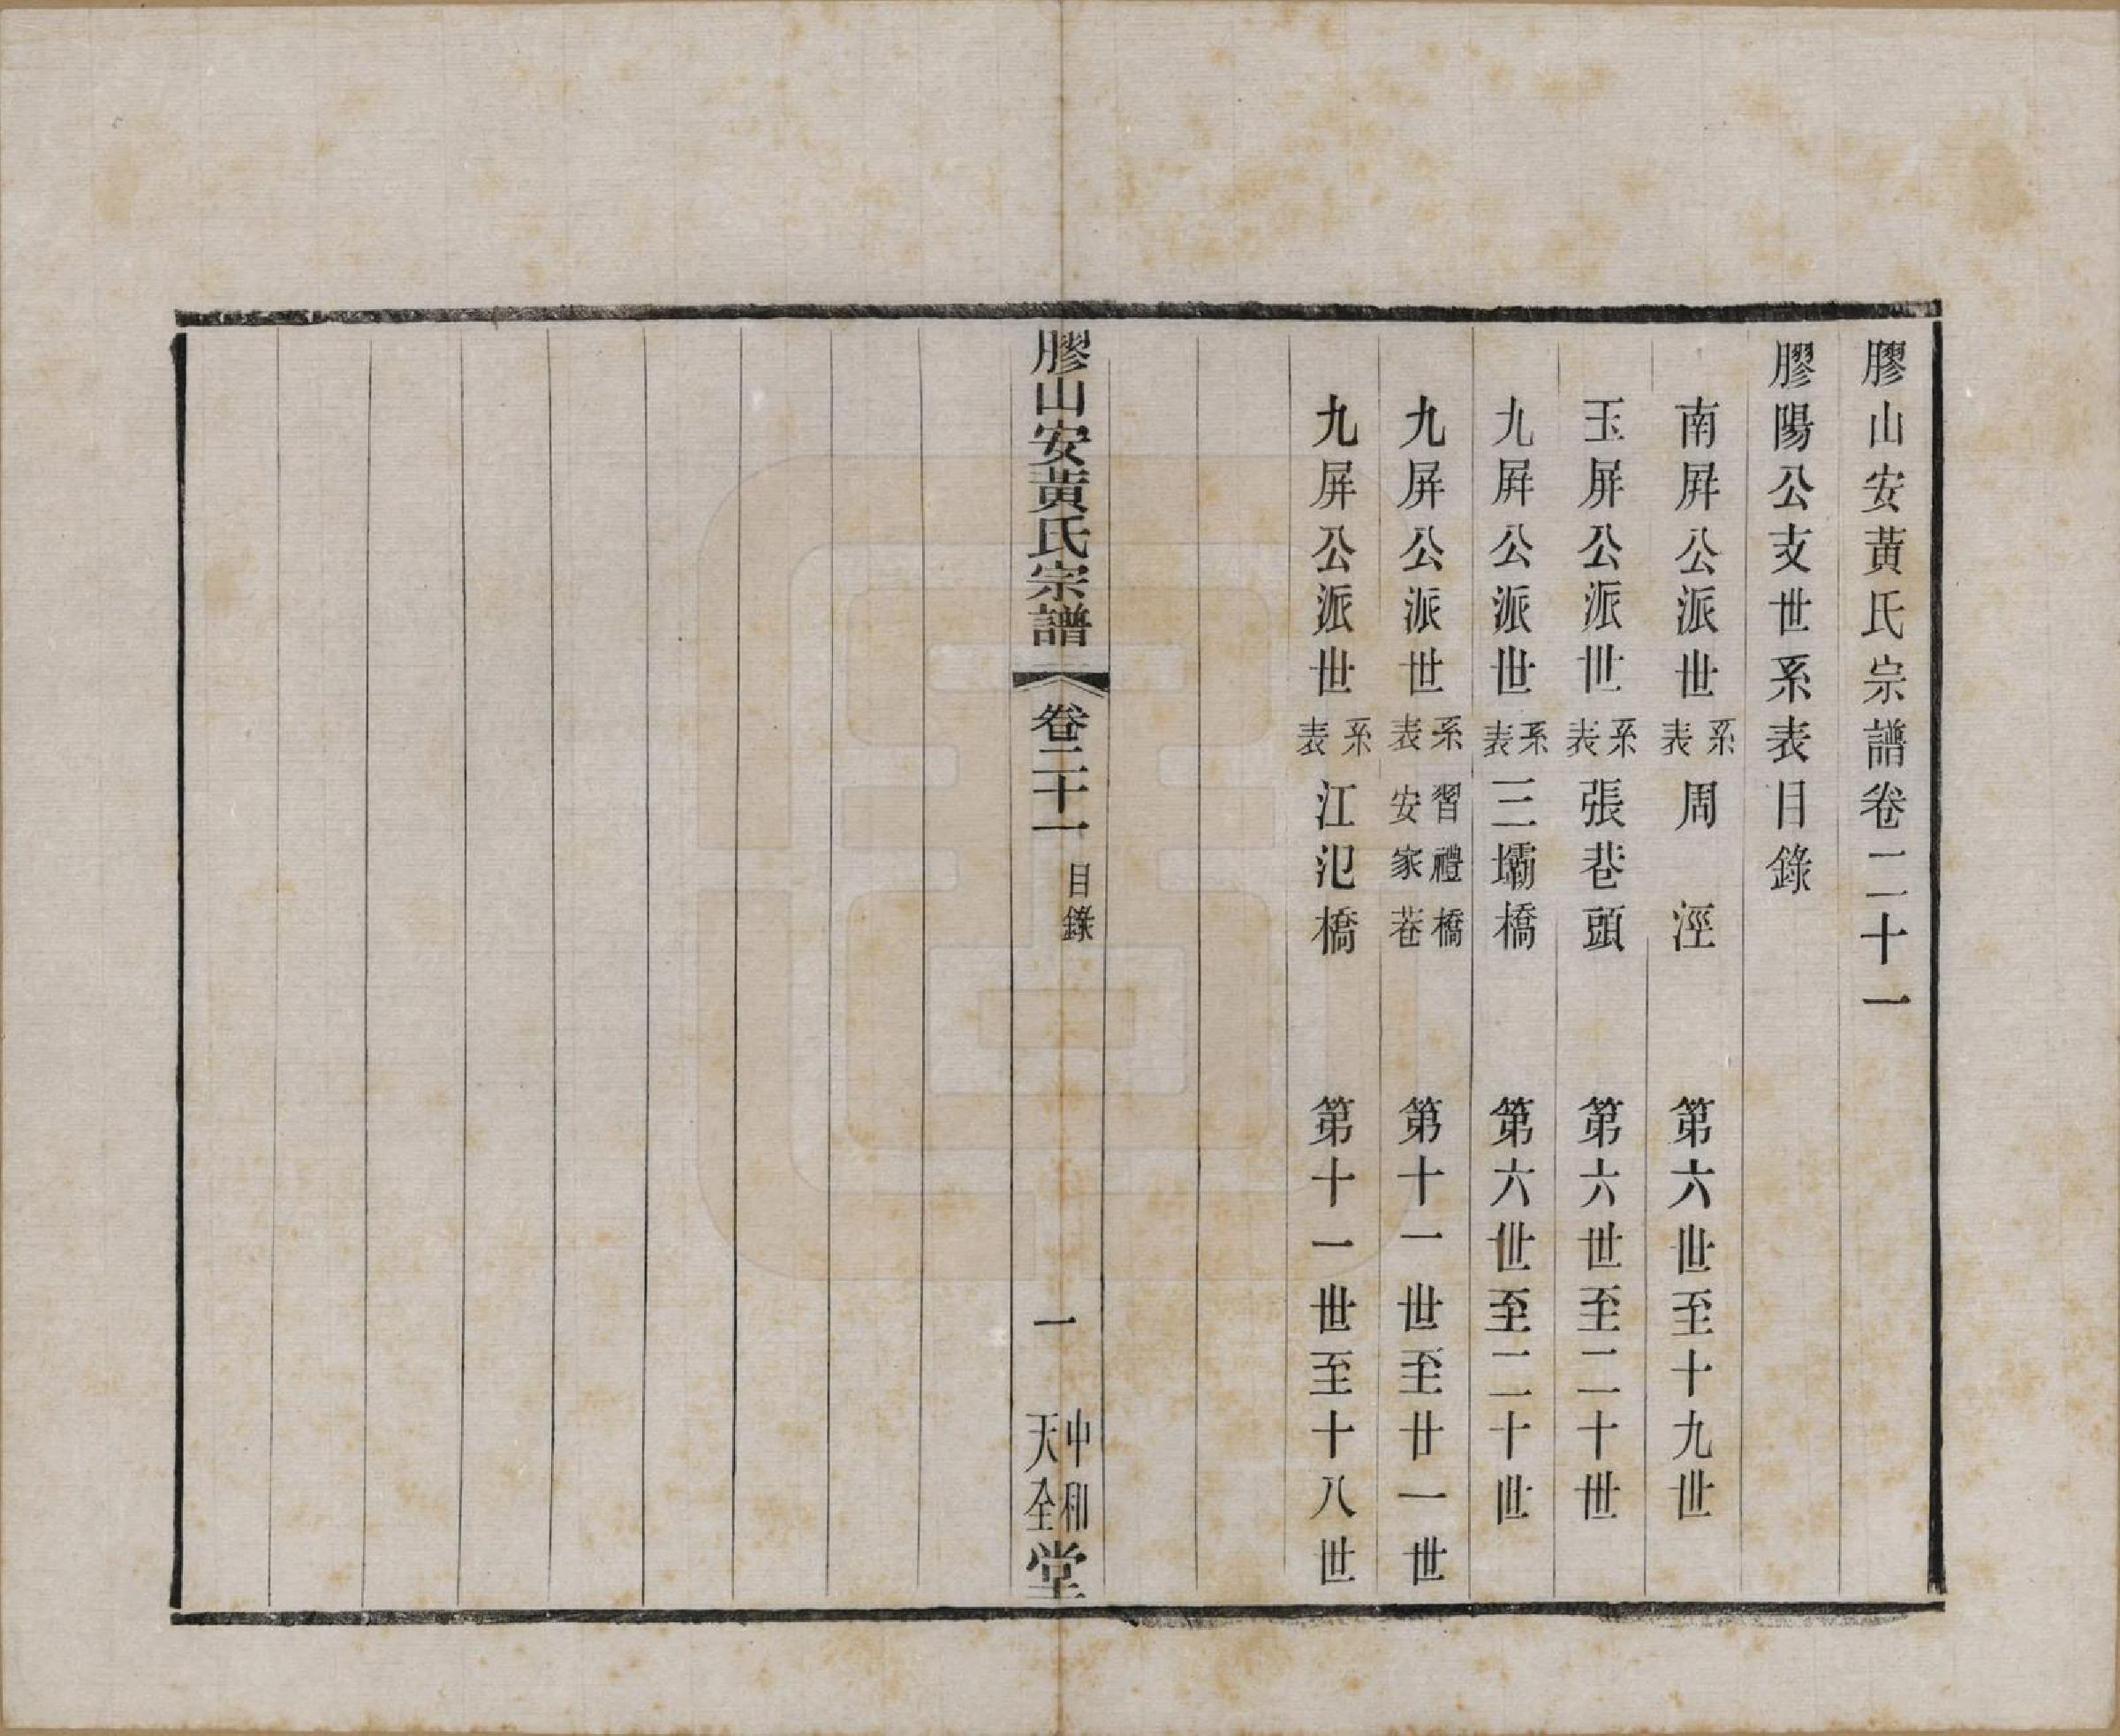 膠山安黃氏宗譜卷二十一
膠陽公支世系表目錄
南屏公派世系表周涇 第六世至十九世
玉屏公派世系表張巷頭 第六世至二十世
九屏公派世系表三壩橋 第六世至二十世
九屏公派世系表習禮橋安家巷 第十一世至廿一世
九屏公派世系表江氾橋 第十一世至十八世
膠山安黃氏宗譜 卷二十一 目錄 一 中和天全堂